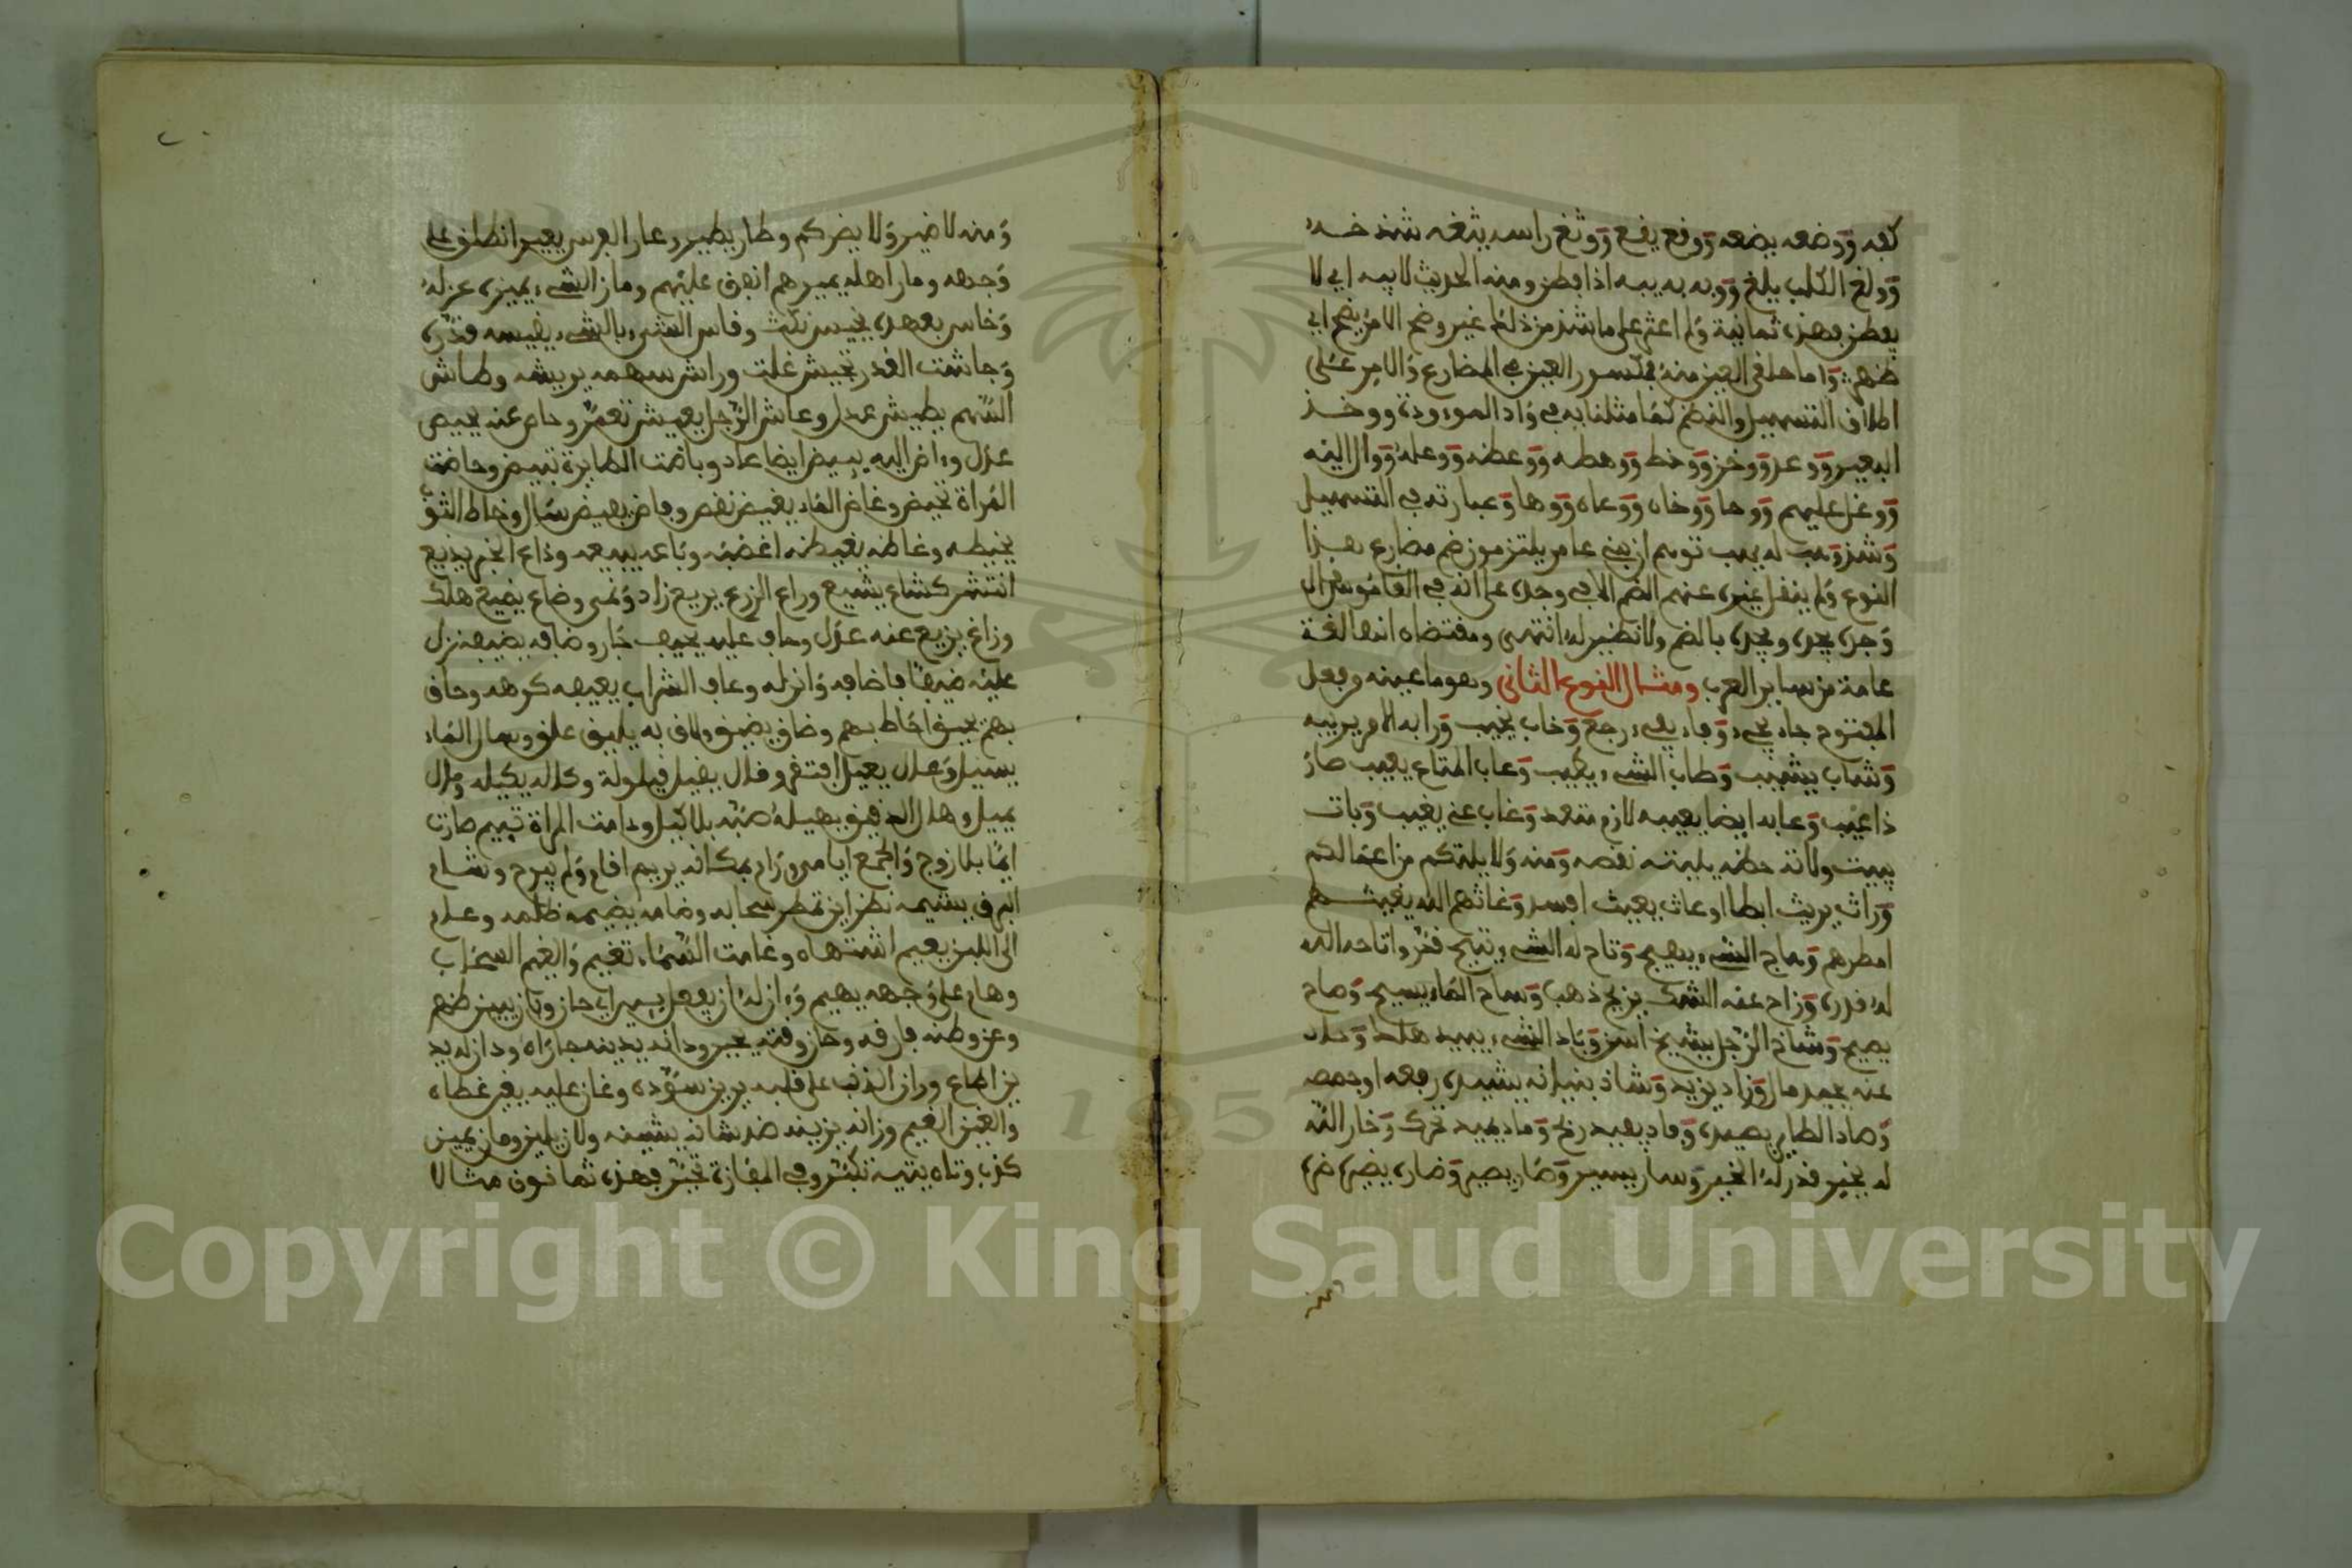 كفه ووضعه يضعه ووقع يقع ووثغ راسه يثغه شدخه
وولغ الكلب يلغ ووبه به يبه اذا فطن ومنه الحديث لا يبه اي لا
يفطن فهذه ثمانية ولم اعثر على ما شذ من ذلك غير وضح الامر يضح اي
ظهر واما حلقي العين منه فمكسور العين في المضارع والامر على
اطلاق التسهيل والنظم كما مثلنا به في واد الموءودة ووخذ
البعير ووعد ووخز ووخط ووهطه ووعظه ووعله ووال اليه
ووغل عليهم ووحا ووخاه ووعاه ووها وعبارته في التسهيل
وشذوهب له يهب توهم ان بني عامر يلتزمون ضم مضارع هذا
النوع ولم ينقل غيره عنهم الضم الا في وجد على انه في القاموس قال
وجده يجده ويجده بالضم ولا نظير له انتهى ومقتضاه انها لغة
عامة من ساير العرب ومثال النوع الثاني وهو ما عينه وفعل
المفتوح جاء يجيء وفاء يفيء رجع وخاب يخيب ورابه الامر يريبه
وشاب يشيب وطاب الشيء يطيب وعاب المتاع يعيب صار
ذا عيب وعابه ايضا يعيبه لازم متعد وغاب عنه يغيب وبات
يبيت ولاته حظه يليته نقصه ومنه ولا يلتكم من اعمالكم
وراث يريث ابطا او عاث يعيث افسد وغاثهم الله يغيثهم
امطرهم وهاج الشيء يهيج وتاح له الشيء يتيح قدر واتاحه الله
له قدره وزاح عنه الشك يزيح ذهب وساح الماء يسيح وصاح
يصيح وشاخ الرجل يشيخ اسن وباد الشيء يبيد هلك وحاد
عنه يحيد مال وزاد يزيد وشاد بنيانه يشيده رفعه او جصصه
وصاد الطاير يصيده وفاد يفيد ربح وماد يميد تحرك وخار الله
له يخير قدر له الخير وسار يسير وصار يصير وضاره يضيره ضره
ومنه لا ضير ولا يضركم وطار يطير وعار الفرس يعير انطلق على
وجهه ومار اهله يميرهم انفق عليهم وماز الشيء يميزه عزله
وخاس بعهده يخيس نكث وقاس الشيء بالشيء يقيسه قدره
وجاشت القدر تجيش غلت وراش سهمه يريشه وطاش
السهم يطيش عدل وعاش الرجل يعيش تعمر وحاص عنه يحيص
عدل وءاض اليه يييض ايضا عاد وباضت الطايرة تبيض وحاضت
المراة تحيض وغاض الماء يغيض نقص وفاض يفيض سال وخاط الثوب
يخيطه وغاظه يغيظه اغضبه وباعه يبيعه وذاع الخبر يذيع
انتشر كشاع يشيع وراع الزرع يريع زاد ونمى وضاع يضيع هلك
وزاغ يزيغ عنه عدل وحاف عليه يحيف جار وضافه يضيفه نزل
عليه ضيفا فاضافه وانزله وعاف الشراب يعيفه كرهه وحاق
بهم يحيق احاط بهم وضاق يضيق ولاق به يليق علق وسال الماء
يسيل وعال يعيل افتقر وقال يقيل قيلولة وكاله يكيله ومال
يميل وهال الدقيق يهيله صبه بلا كيل وءامت المراة تييم صارت
ايما بلا زوج والجمع ايامى ورام بمكانه يريم اقام ولم يبرح وشام
البرق يشيمه نظر اين تمطر سحابه وضامه يضيمه ظلمه وعام
الى اللبن يعيم اشتهاه وغامت السماء تغيم والغيم السحاب
وهام على وجهه يهيم وءان له ان يفعل ييين اي حان وبان يبين ظهر
وعن وطنه فارقه وحان وقته يحين ودانه يدينه جازاه ودان له يد
ين اطاع وران الذنب على قلبه يرين سوده وغان عليه يغين غطاه
والغين الغيم وزانه يزينه ضد شانه يشينه ولان يلين ومان يمين
كذب وتاه يتيه تكبر وفي المفازة تحير فهذه ثمانون مثالا